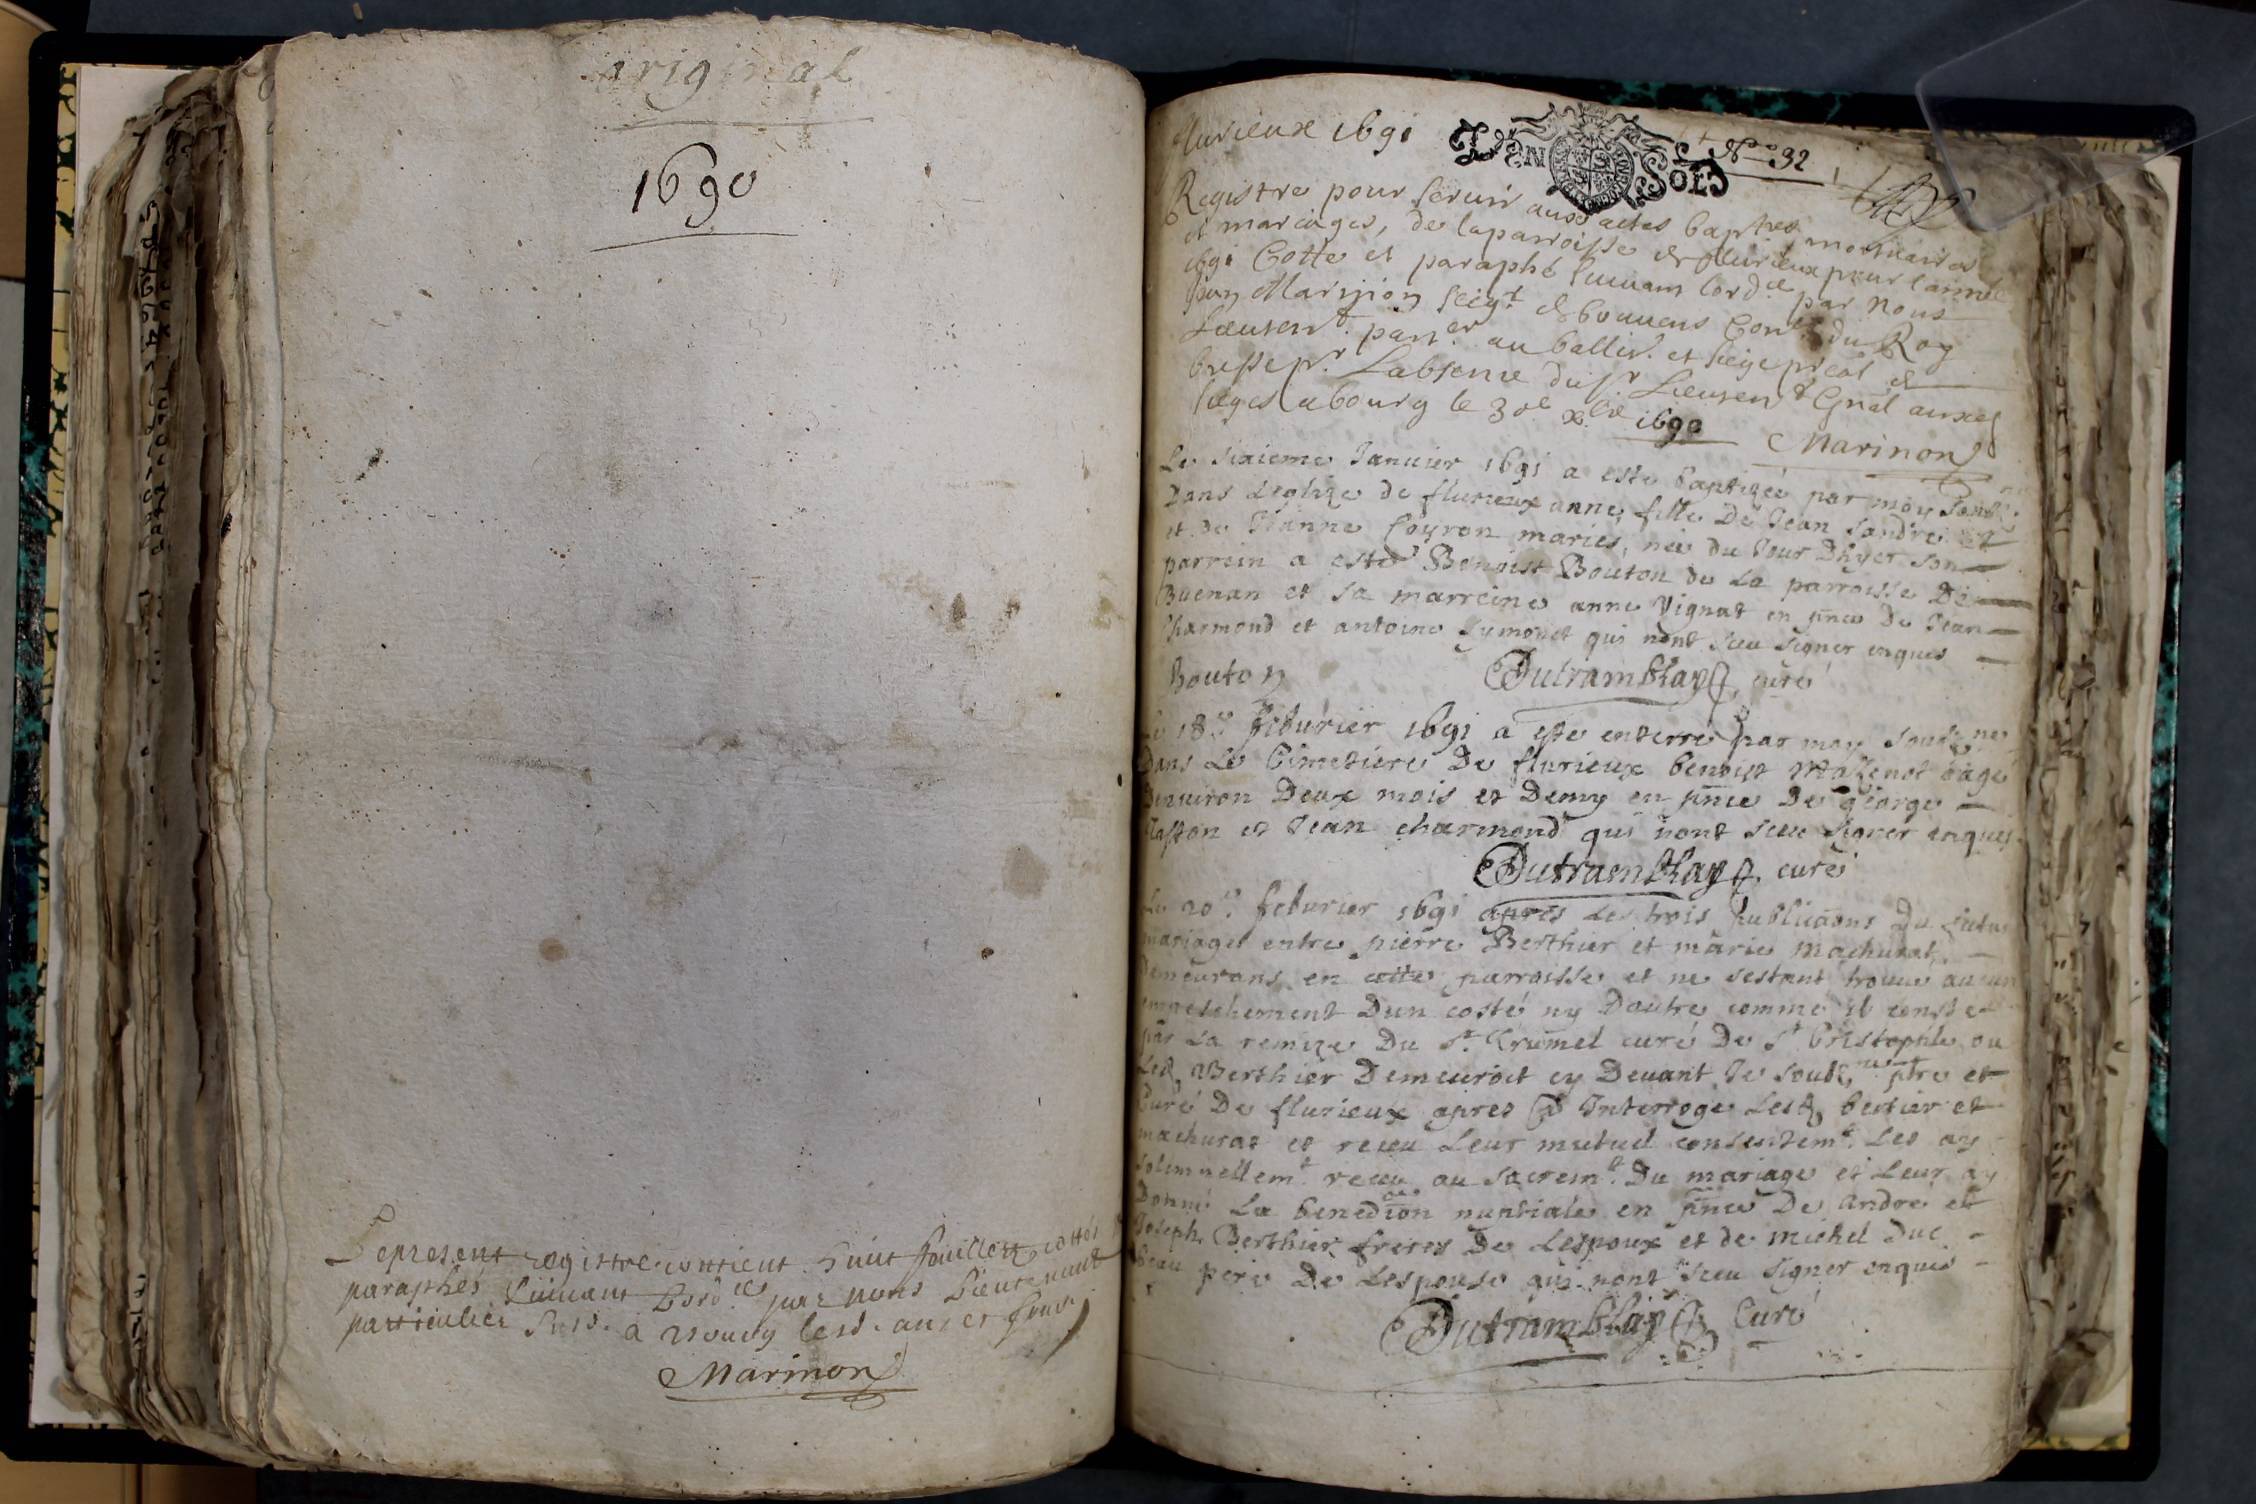 original
1690
Le present registre contient huict feuillets cottés
paraphés suiuant lord.ce par nous Lieutenant
particulier susd. à Bourg lesd. an et jour
Marinon
flurieux 1691
DEN SOLS
N.o 32
Registre pour seruir aux actes baptres mortuaires
et mariages, de la parroisse de flurieux pour l'année
1691 Cotté et paraphé suiuant lord.ce par Nous
Marinon seig.r de bouuens Con.er du Roy
Lieuten.t part.er au balliu. et siege pr̃eal de
bresse p.r Labsence du s.r Lieuten.t Gñal auxd.
sieges a bourg le 30e xbre 1690
Marinon
Le sixieme Januier 1691 a este baptizée par moy soub.ne
Dans Leglize de flurieux anne, fille De Jean sandre
et de Jeanne Coyron mariés, née du Jour Dhyer son
parrein a esté Benoist Bouton de La parroisse De
Buenan et sa marreine anne Vignat en pñce de Jean
Charmond et antoine symonet qui nont sceu signer enquis
Bouton Dutramblay curé
Le 18.e feburier 1691 a este enterré par moy soub.ne
Dans Le Cimetiere De flurieux benoist Mazenot aagé
Denuiron Deux mois et Demy en pñce De george
Taston et Jean charmond qui nont sceu signer enquis
Dutramblay curé
Le 20.e feburier 1691 apres Les trois publicãons Du futur
mariage entre pierre Berthier et marie Machurat
Demeurans en cette parroisse et ne sestant trouue aucun
empeschement Dun costé ny Dautre comme il conste
par La remize Du s.r Crumel curé De s.t Cristophle ou
Led. Berthier Demeuroit cy Deuant Je soub.ne ptre et
Curé De flurieux apres Interrogé Lesd. bertier et
machurat et receu Leur mutuel consentem.t Les ay
solemnellem.t receu au sacrem.t Du mariage et Leur ay
Donné La benediõon nuptiale en pñce De andré et
Joseph Berthier freres De Lespoux et de michel Duc
beau pere De Lespouse qui nont sceu signer enquis
Dutramblay Curé